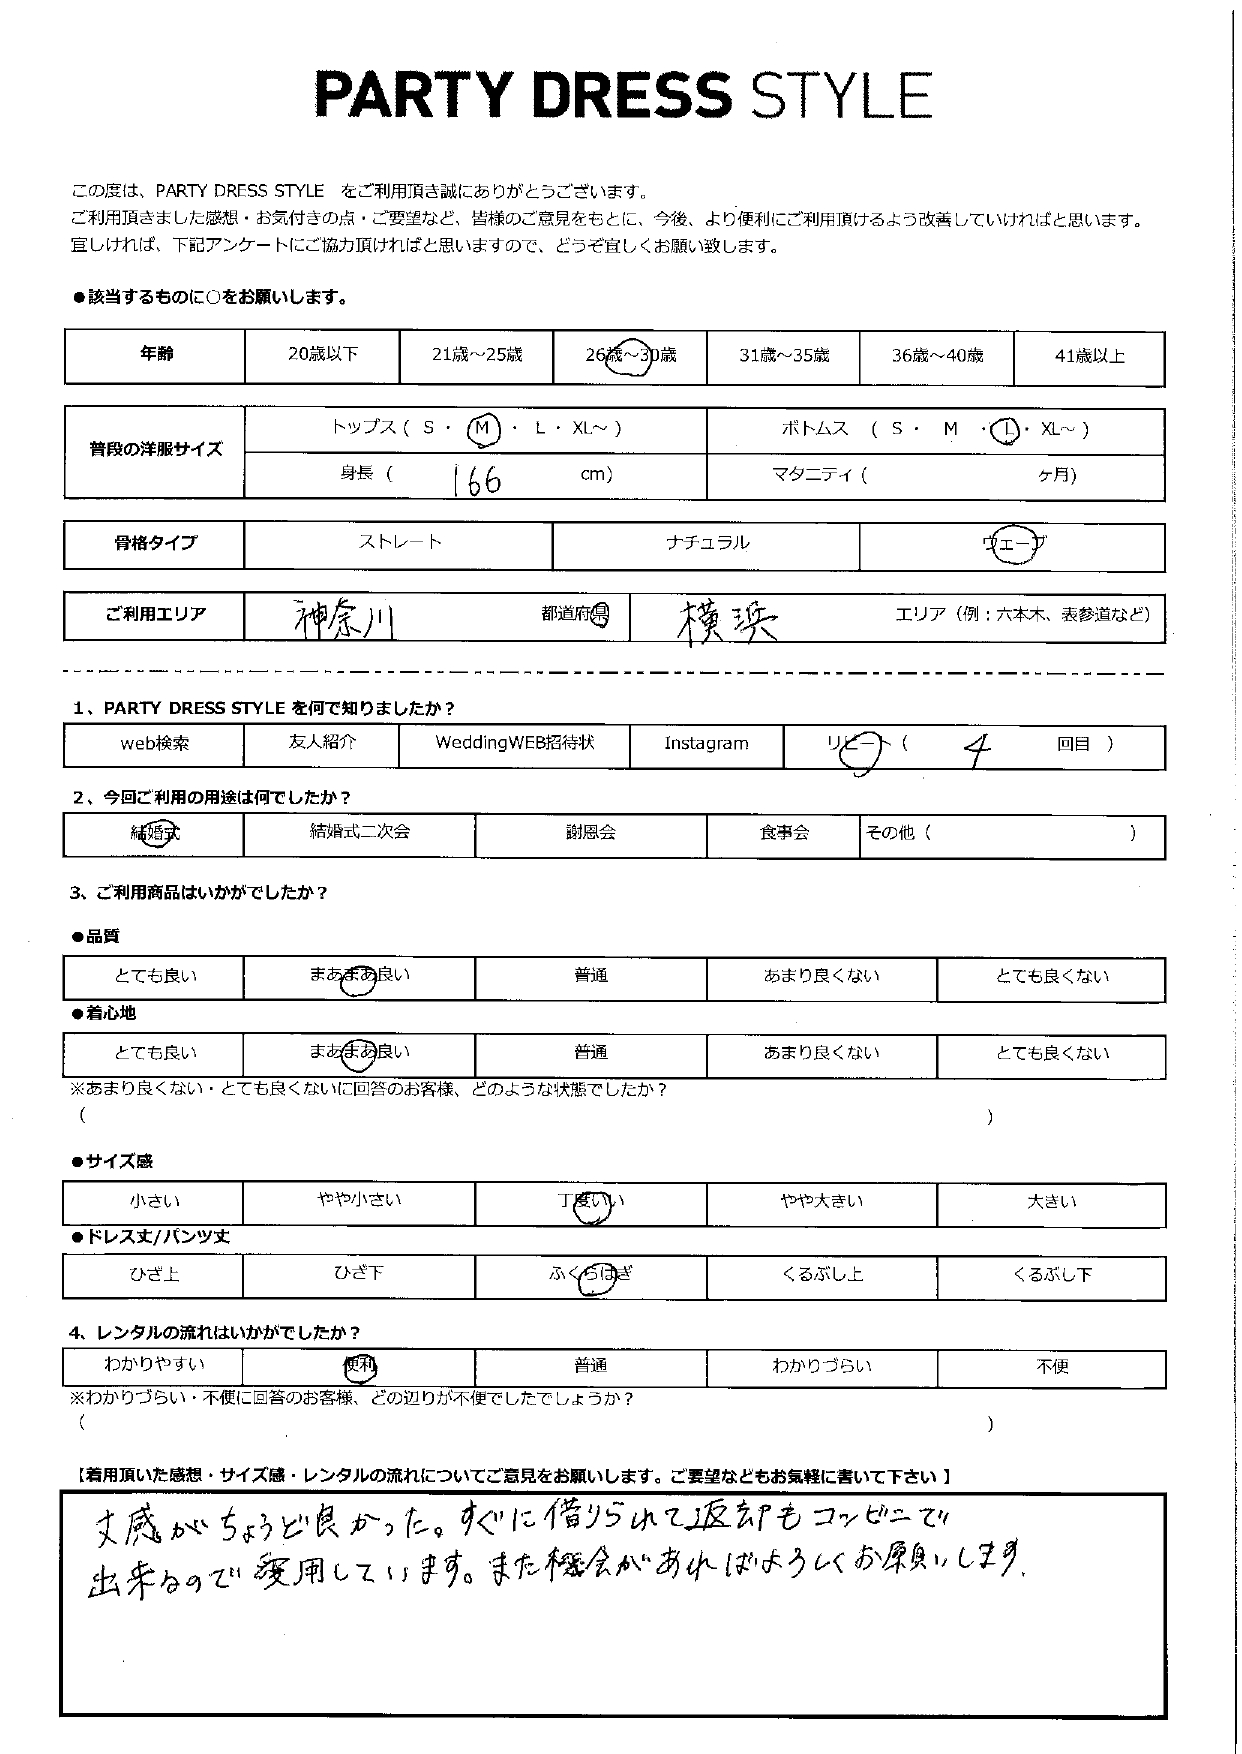 PARTY DRESS STYLE
この度は、PARTY DRESS STYLE をご利用頂き誠にありがとうございます。
ご利用頂きました感想・お気付きの点・ご要望など、皆様のご意見をもとに、今後、より便利にご利用頂けるよう改善していければと思います。
宜しければ、下記アンケートにご協力頂ければと思いますので、どうぞ宜しくお願い致します。
●該当するものに○をお願いします。
年齢 20歳以下 21歳～25歳 26歳～30歳 31歳～35歳 36歳～40歳 41歳以上
普段の洋服サイズ トップス ( S ・ M ・ L ・ XL～ ) ボトムス ( S ・ M ・ L ・ XL～ )
身長 ( 166 cm) マタニティ ( ヶ月)
骨格タイプ ストレート ナチュラル ウェーブ
ご利用エリア 神奈川 都道府県 横浜 エリア（例：六本木、表参道など）
1、PARTY DRESS STYLE を何で知りましたか？
web検索 友人紹介 WeddingWEB招待状 Instagram リピート ( 4 回目 )
2、今回ご利用の用途は何でしたか？
結婚式 結婚式二次会 謝恩会 食事会 その他 ( )
3、ご利用商品はいかがでしたか？
●品質
とても良い まあまあ良い 普通 あまり良くない とても良くない
●着心地
とても良い まあまあ良い 普通 あまり良くない とても良くない
※あまり良くない・とても良くないに回答のお客様、どのような状態でしたか？
( )
●サイズ感
小さい やや小さい 丁度いい やや大きい 大きい
●ドレス丈/パンツ丈
ひざ上 ひざ下 ふくらはぎ くるぶし上 くるぶし下
4、レンタルの流れはいかがでしたか？
わかりやすい 便利 普通 わかりづらい 不便
※わかりづらい・不便に回答のお客様、どの辺りが不便でしたでしょうか？
( )
【着用頂いた感想・サイズ感・レンタルの流れについてご意見をお願いします。ご要望などもお気軽に書いて下さい 】
丈感がちょうど良かった。すぐに借りられて返却もコンビニで
出来るので愛用しています。また機会があればよろしくお願いします.